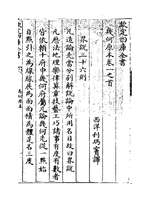 欽定四庫全書
幾何原本卷一之首
西洋利瑪竇譯
界説三十六則
凡造論先當分別解説論中所用名目故曰界説
凡歷法地理樂律算章技藝工巧諸事有度有數者
皆依賴十府中幾何府屬凡論幾何先從一點始
自點引之為線線展為面面積為體是名三度
欽定四庫全書
幾何原本